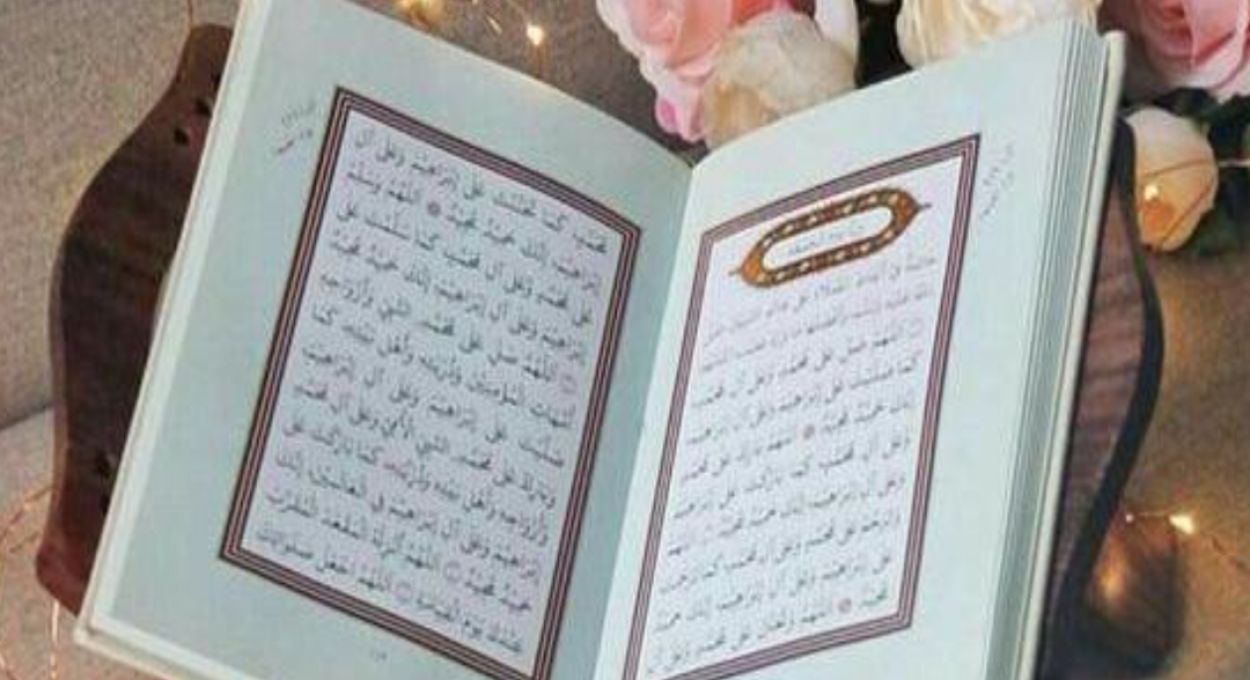 اللَّهُمَّ صَلِّ عَلَى مُحَمَّدٍ وَعَلَى آلِ مُحَمَّدٍ
كَمَا صَلَّيْتَ عَلَى إِبْرَاهِيمَ وَعَلَى آلِ إِبْرَاهِيمَ
إِنَّكَ حَمِيدٌ مَجِيدٌ اللَّهُمَّ بَارِكْ عَلَى مُحَمَّدٍ
وَعَلَى آلِ مُحَمَّدٍ كَمَا بَارَكْتَ عَلَى إِبْرَاهِيمَ
وَعَلَى آلِ إِبْرَاهِيمَ إِنَّكَ حَمِيدٌ مَجِيدٌ اللَّهُمَّ
وَتَرَحَّمْ عَلَى مُحَمَّدٍ وَعَلَى آلِ مُحَمَّدٍ كَمَا تَرَحَّمْتَ
عَلَى إِبْرَاهِيمَ وَعَلَى آلِ إِبْرَاهِيمَ إِنَّكَ حَمِيدٌ
مَجِيدٌ اللَّهُمَّ وَتَحَنَّنْ عَلَى مُحَمَّدٍ وَعَلَى آلِ
مُحَمَّدٍ كَمَا تَحَنَّنْتَ عَلَى إِبْرَاهِيمَ وَعَلَى آلِ
إِبْرَاهِيمَ إِنَّكَ حَمِيدٌ مَجِيدٌ اللَّهُمَّ وَسَلِّمْ
عَلَى مُحَمَّدٍ وَعَلَى آلِ مُحَمَّدٍ كَمَا سَلَّمْتَ عَلَى
إِبْرَاهِيمَ وَعَلَى آلِ إِبْرَاهِيمَ إِنَّكَ حَمِيدٌ مَجِيدٌ
اللَّهُمَّ صَلِّ عَلَى مُحَمَّدٍ النَّبِيِّ وَأَزْوَاجِهِ
أُمَّهَاتِ الْمُؤْمِنِينَ وَذُرِّيَّتِهِ وَأَهْلِ بَيْتِهِ كَمَا
صَلَّيْتَ عَلَى إِبْرَاهِيمَ وَعَلَى آلِ إِبْرَاهِيمَ
وَبَارِكْ عَلَى مُحَمَّدٍ النَّبِيِّ الْأُمِّيِّ وَعَلَى آلِ مُحَمَّدٍ
وَأَزْوَاجِهِ وَأَهْلِ بَيْتِهِ وَذُرِّيَّتِهِ كَمَا بَارَكْتَ عَلَى
إِبْرَاهِيمَ وَعَلَى آلِ إِبْرَاهِيمَ فِي الْعَالَمِينَ إِنَّكَ
حَمِيدٌ مَجِيدٌ اللَّهُمَّ أَنْزِلْهُ الْمَقْعَدَ الْمُقَرَّبَ
عِنْدَكَ يَوْمَ الْقِيَامَةِ اللَّهُمَّ اجْعَلْ صَلَوَاتِكَ